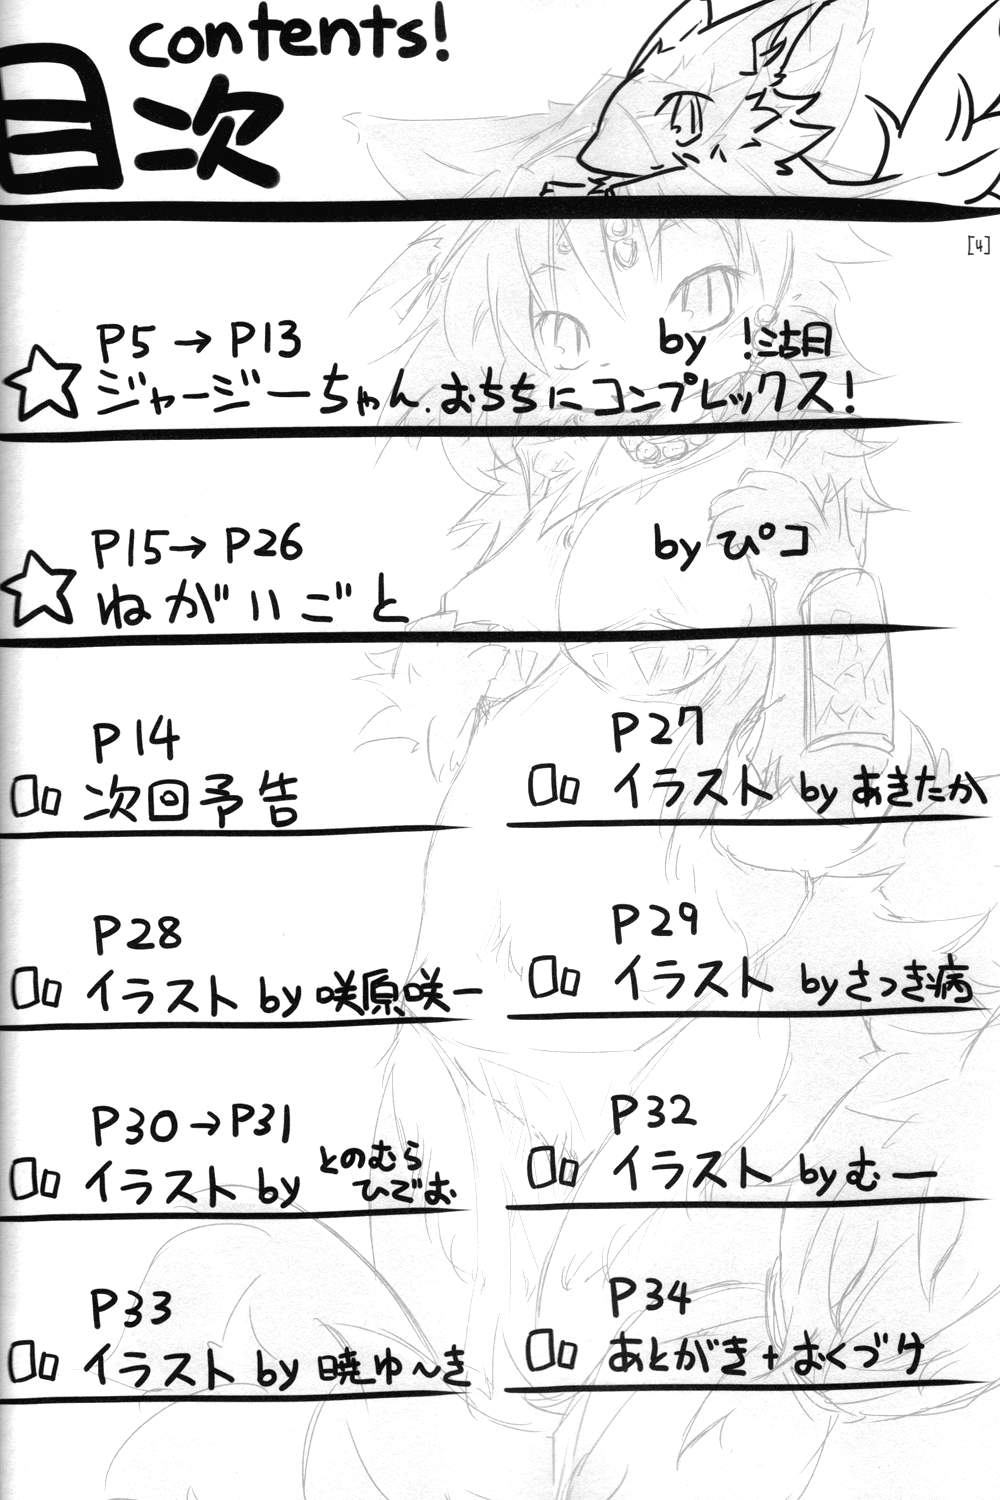 contents!
目次
[4]
P5 → P13
by !湖目
ジャージーちゃん.おちちにコンプレックス!
P15→ P26
by ぴコ
ねがいごと
P14
次回予告
P27
イラスト by あきたか
P28
イラスト by 咲原咲一
P29
イラスト by さつき病
P30→P31
イラスト by とのむら
ひでお
P32
イラスト by むー
P33
イラスト by 暁ゆ〜き
P34
あとがき+おくづけ